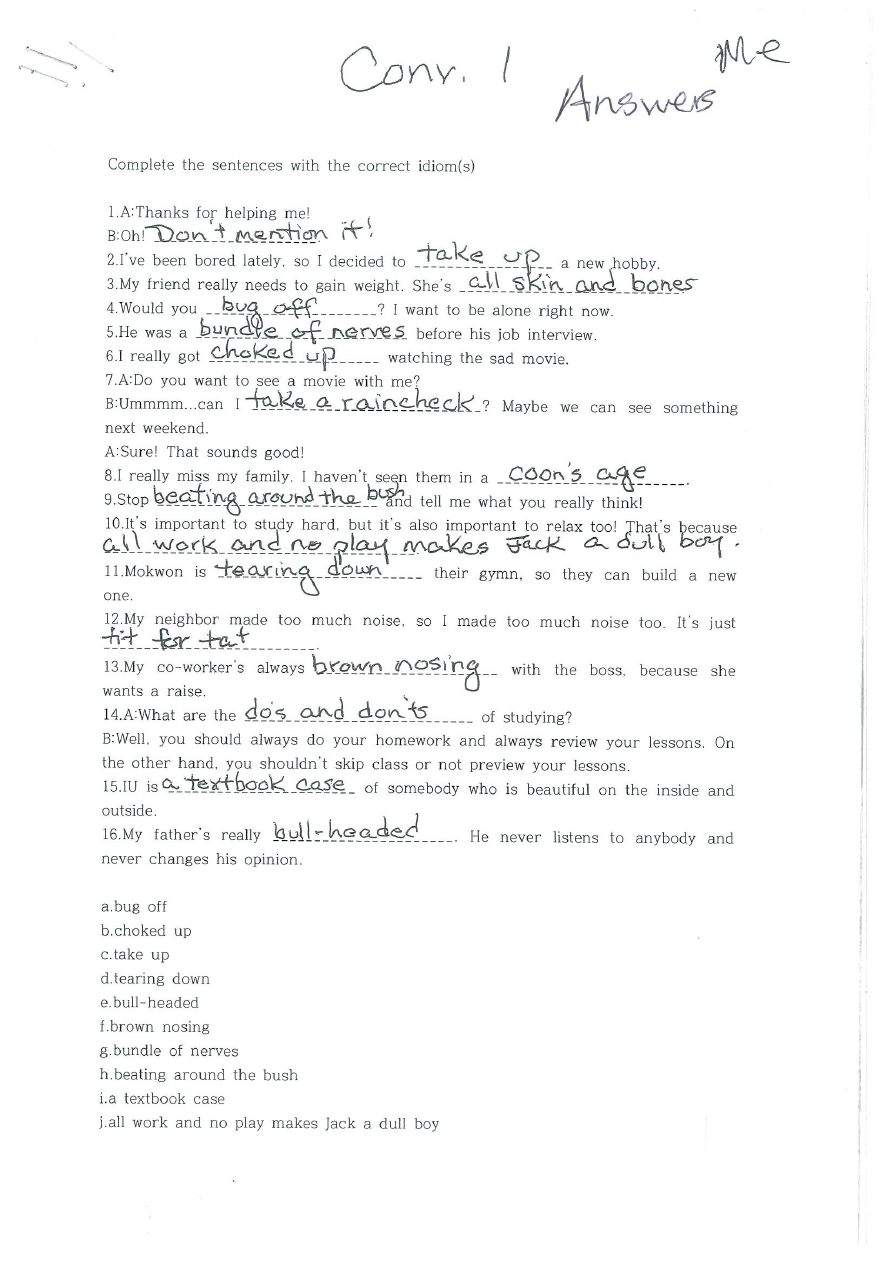 Conv. 1
Me
Answers
Complete the sentences with the correct idiom(s)
1.A:Thanks for helping me!
B:Oh! Don't mention it!
2.I've been bored lately, so I decided to take up a new hobby.
3.My friend really needs to gain weight. She's all skin and bones
4.Would you bug off? I want to be alone right now.
5.He was a bundle of nerves before his job interview.
6.I really got choked up watching the sad movie.
7.A:Do you want to see a movie with me?
B:Ummmm...can I take a raincheck? Maybe we can see something
next weekend.
A:Sure! That sounds good!
8.I really miss my family. I haven't seen them in a coon's age.
9.Stop beating around the bush and tell me what you really think!
10.It's important to study hard, but it's also important to relax too! That's because
all work and no play makes Jack a dull boy.
11.Mokwon is tearing down their gymn, so they can build a new
one.
12.My neighbor made too much noise, so I made too much noise too. It's just
tit for tat.
13.My co-worker's always brown nosing with the boss, because she
wants a raise.
14.A:What are the do's and don'ts of studying?
B:Well, you should always do your homework and always review your lessons. On
the other hand, you shouldn't skip class or not preview your lessons.
15.IU is a textbook case of somebody who is beautiful on the inside and
outside.
16.My father's really bull-headed. He never listens to anybody and
never changes his opinion.
a.bug off
b.choked up
c.take up
d.tearing down
e.bull-headed
f.brown nosing
g.bundle of nerves
h.beating around the bush
i.a textbook case
j.all work and no play makes Jack a dull boy